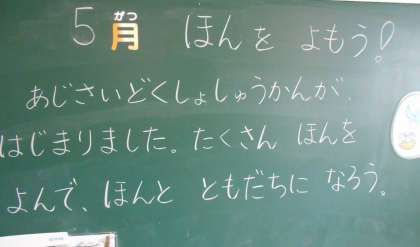 5月 ほんを よもう!
がつ
あじさいどくしょしゅうかんが、
はじまりました。たくさん ほんを
よんで、ほんと ともだちに なろう。